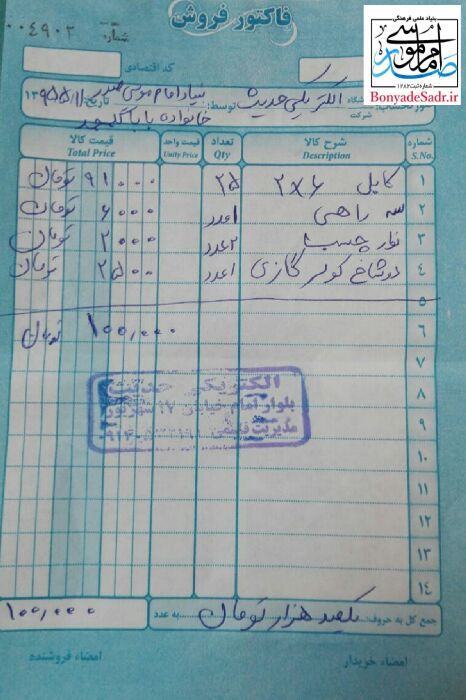 فاکتور فروش
شماره: ۰۰۴۹۰۲
بنیاد علمی فرهنگی
امام موسی صدر
شماره ثبت ۱۲۸۲
BonyadeSadr.ir
کد اقتصادی
شرکت الکتریکی حدیث توسط: بنیاد امام موسی صدر تاریخ:
خانواده
شماره S.No. شرح کالا Description تعداد Qty قیمت واحد Unity Price قیمت کالا Total Price
۱ کابل ۲×۶ ۲۵ ۹۱۰۰۰ تومان
۲ سه راهی ۱عدد ۶۰۰۰ تومان
۳ نوار چسب ۲عدد ۲۰۰۰ تومان
۴ دوشاخ کولر گازی ۱عدد ۲۵۰۰ تومان
۵
۶ ۱۰۰,۰۰۰ تومان
۷
۸
۹
۱۰
۱۱
۱۲
۱۳
۱۴
الکتریکی حدیث
بلوار امام خیابان ۱۷ شهریور
مدیریت
جمع کل به حروف: یکصد هزار تومان به عدد ۱۰۰,۰۰۰
امضاء خریدار امضاء فروشنده